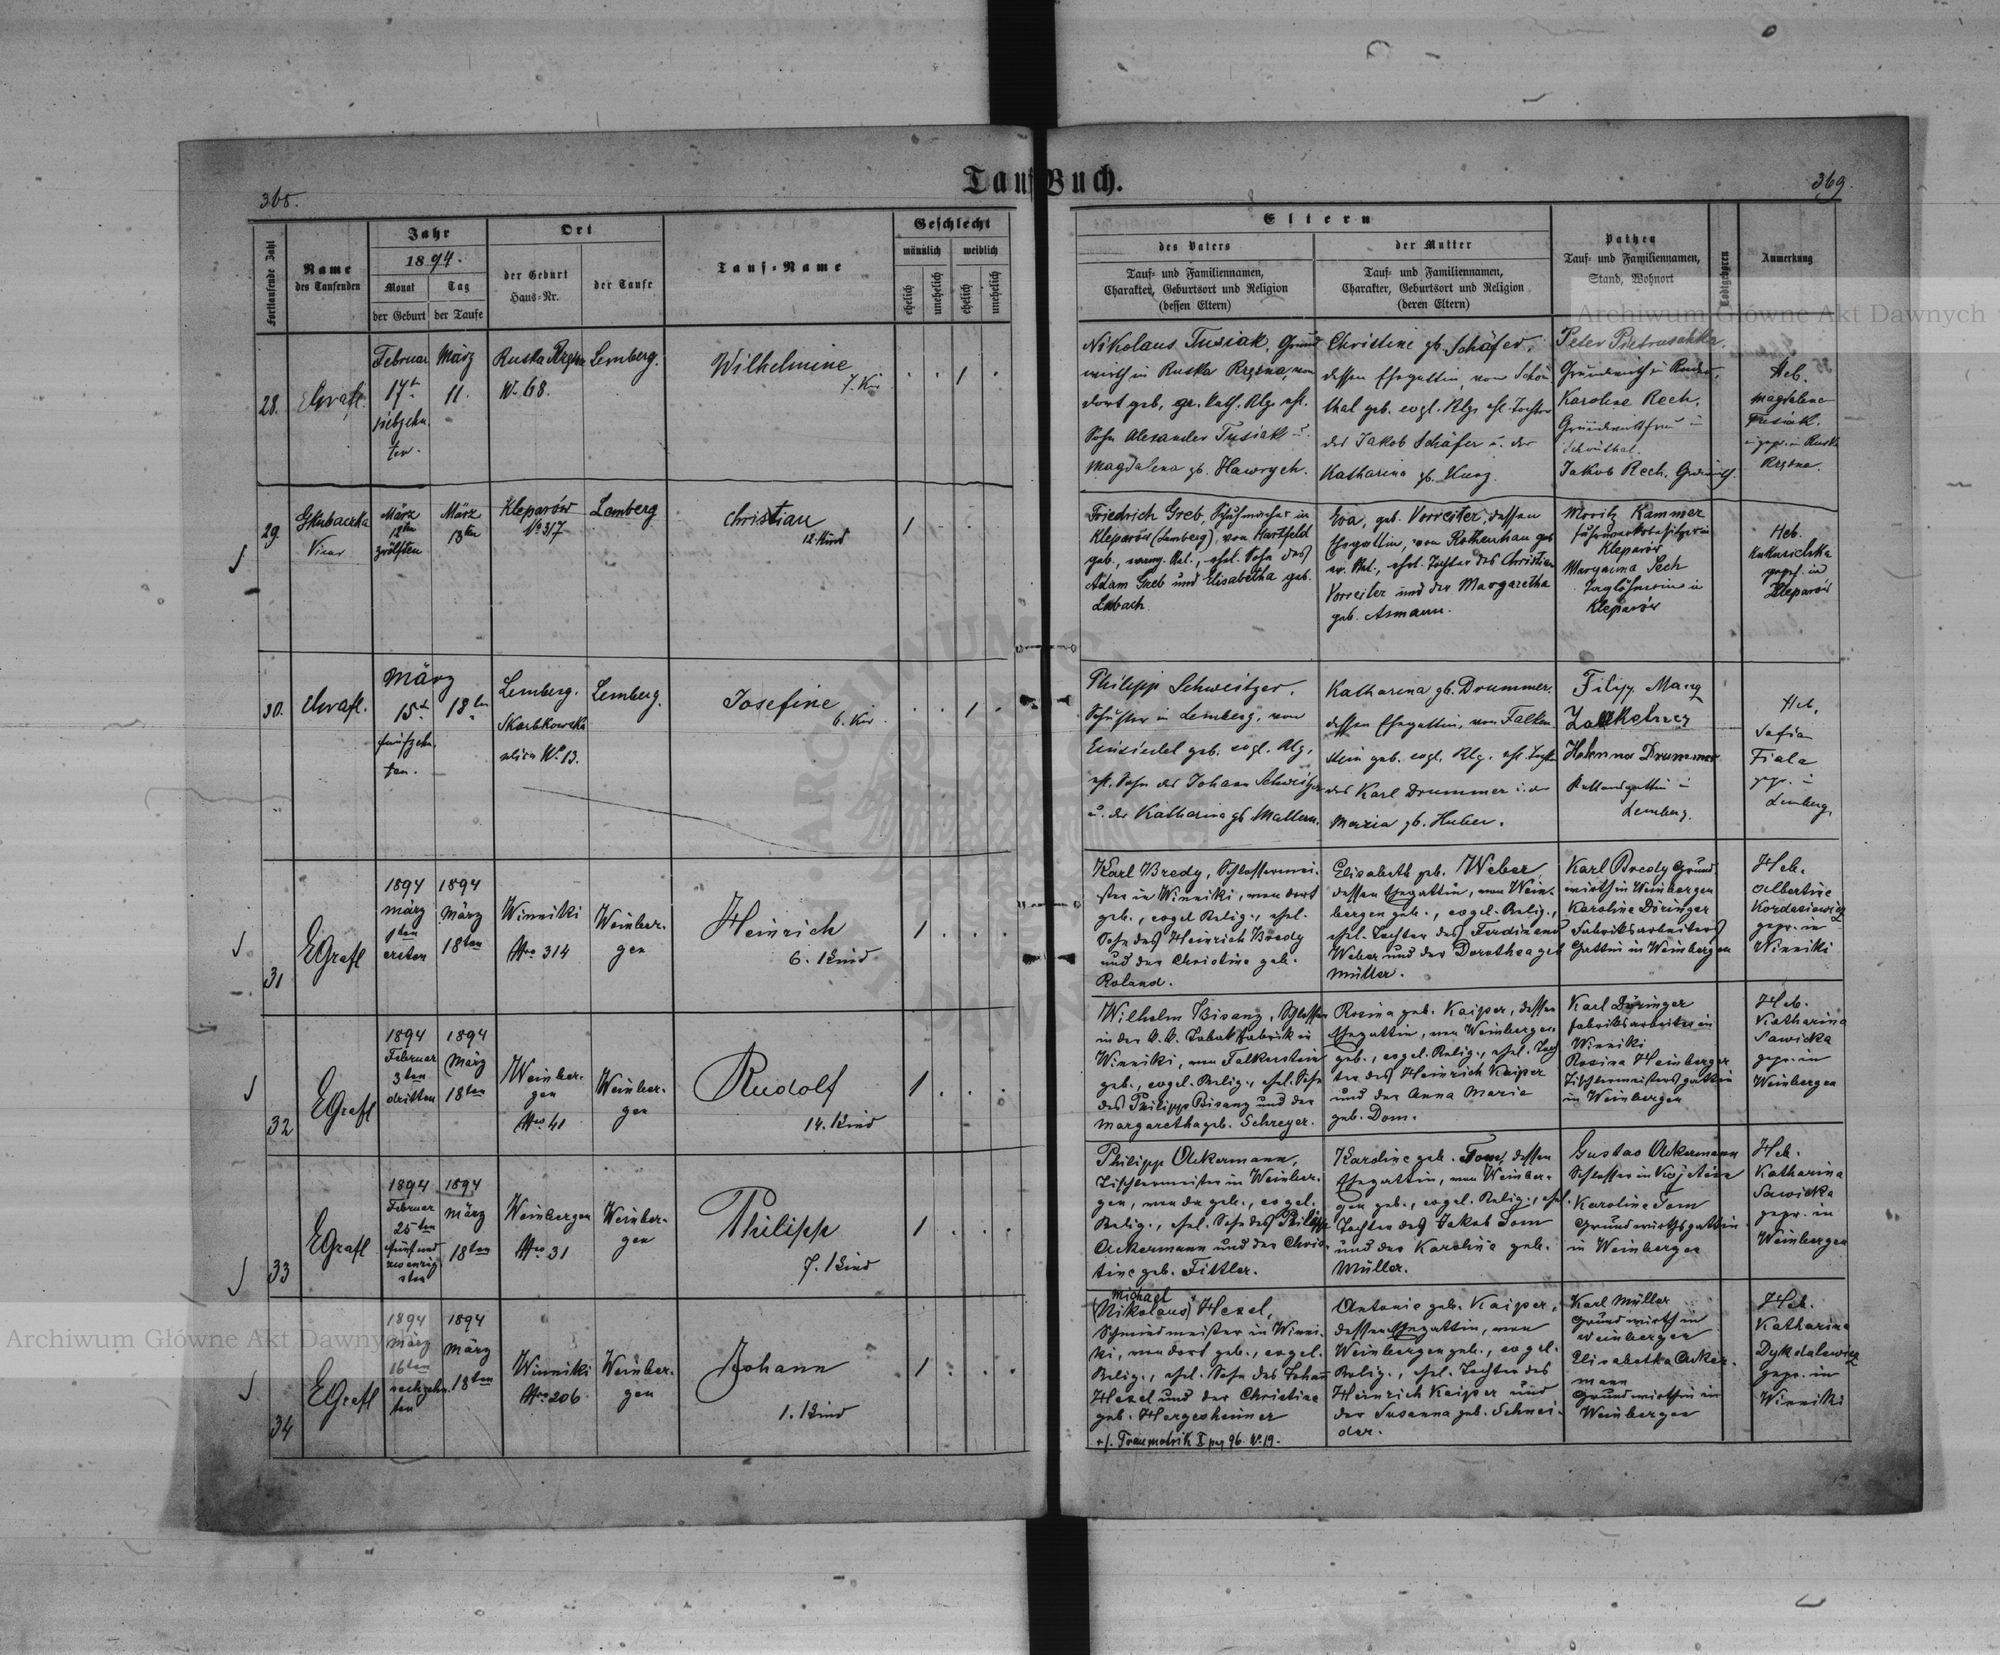 Tauf Buch.
368.
369.
Fortlaufende Zahl
Name
des Taufenden
Jahr
1894.
Monat
Tag
der Geburt
der Taufe
Ort
der Geburt
Haus-Nr.
der Taufe
Tauf-Name
Geschlecht
männlich
weiblich
ehelich
unehelich
ehelich
unehelich
Eltern
des Vaters
Tauf- und Familiennamen,
Charakter, Geburtsort und Religion
(dessen Eltern)
der Mutter
Tauf- und Familiennamen,
Charakter, Geburtsort und Religion
(deren Eltern)
Pathen
Tauf- und Familiennamen,
Stand, Wohnort
Anmerkung
28.
Februar
17t
siebzehn
ten.
März
11.
Ruska Rzęsna
No. 68.
Lemberg.
Wilhelmine
7. Kind
1
Nikolaus Tusiak, Grund
wirth in Ruska Rzęsna, von
dort geb., gr. kath. Rlg. ehl.
Sohn Alexander Tusiak u.
Magdalena gb. Hawrych.
Christine gb. Schäfer,
dessen Ehegattin, von Schön
thal geb. evgl. Rlg. ehl. Tochter
des Jakob Schäfer u. der
Katharina gb. Kunz.
Peter Pietruschka,
Karoline Rech,
Schönthal.
Jakob Rech,
Heb.
Magdalena
Tusiak,
Rzęsna.
29.
Vicar
März
12ten
zwölften
März
13ten
Kleparów
No 317
Lemberg
Christian
12. Kind
1
Friedrich Greb, Schuhmacher in
Kleparów (Lemberg), von Hartfeld
geb., evang. Rel., ehel. Sohn des
Adam Greb und Elisabetha geb.
Eva, geb. Vorreiter, dessen
Ehegattin, von Rottenhan geb.
ev. Rel., ehel. Tochter des Christian
Vorreiter und der Margaretha
geb. Asmann.
Moritz Kammer
Kleparów
Taglöhnerin in
Kleparów
Heb.
geprf. in
Kleparów
30.
März
15t
fünfzehn
ten.
18ten
Lemberg.
Skarbkowska
ulica No. 13.
Lemberg.
Josefine
6. Kind
1
Philipp Schweitzer,
Schuster in Lemberg, von
Einsiedel geb. evgl. Rlg.,
ehl. Sohn des Johann Schweitzer
u. der Katharina gb. Mattern.
Katharina gb. Drummer,
dessen Ehegattin, von Falken
stein geb. evgl. Rlg. ehl. Tochter
des Karl Drummer u. der
Maria gb. Huber.
Filipp Mang
Drummer
Lemberg.
Heb.
Sofia
Fiala
gepr. in
Lemberg.
31
EGrafl
1894
März
1ten
ersten
1894
März
18ten
Winniki
Nro 314
Weinber-
gen
Heinrich
6. Kind
1
Karl Bredy, Schlossermei-
ster in Winniki, von dort
geb., evgel Relig., ehel.
Sohn des Heinrich Bredy
und der Christine geb.
Roland.
Elisabeth geb. Weber,
dessen Ehegattin, von Wein-
bergen geb., evgel. Relig.,
ehel. Tochter des Ferdinand
Weber und der Dorothea geb
Müller.
Karl Bredy Grund
wirth in Weinbergen
Karoline Döringer
Fabriksarbeiters
Gattin in Weinbergen
Heb.
Albertine
Kordasiewicz
gepr. in
Winniki
32
EGrafl
1894
Februar
3ten
dritten
1894
März
18ten
Weinber-
gen
Nro 41
Weinber-
gen
Rudolf
14. Kind
1
Wilhelm Bisanz, Schlosser
in der k.k. Tabak Fabrik in
Winniki, von Falkenstein
geb., evgel. Relig., ehel. Sohn
des Philipp Bisanz und der
Margaretha geb. Schreyer.
Rosina geb. Kaiper, dessen
Ehegattin, von Weinbergen
geb., evgel. Relig., ehel. Toch
ter des Heinrich Kaiper
und der Anna Marie
geb. Dom.
Karl Döringer
Fabriksarbeiter in
Winniki
Rosina Heinberger
Tischlermeistersgattin
in Weinbergen
Heb.
Katharina
Sawicka
gepr. in
Weinbergen
33
EGrafl
1894
Februar
25ten
fünfund
zwanzig
sten
1894
März
18ten
Weinbergen
Nro 31
Weinber-
gen
Philipp
7. Kind
1
Philipp Ackermann,
Tischlermeister in Weinber-
gen, von da geb., evgel.
Relig., ehel. Sohn des Philipp
Ackermann und der Chris-
tine geb. Fittler.
Karoline geb. Tom, dessen
Ehegattin, von Weinber-
gen geb., evgel. Relig., ehel.
Tochter des Jakob Tom
und der Karolina geb.
Müller.
Gustav Ackermann
Karoline Tom
Grundwirthsgattin
in Weinbergen
Heb.
Katharina
Sawicka
gepr. in
Weinbergen
34
EGrafl
1894
März
16ten
sechzehn
ten
1894
März
18ten
Winniki
Nro 206
Weinber-
gen
Johann
1. Kind
1
Michael
(Nikolaus) Hexel,
Schmiedmeister in Winni-
ki, von dort geb., evgel.
Relig., ehel. Sohn des Johann
Hexel und der Christine
geb. Hergesheimer
+/. Traumatrik I pag 96. No. 19.
Antonie geb. Kaiper,
dessen Ehegattin, von
Weinbergen geb., evgel.
Relig., ehel. Tochter des
Heinrich Kaiper und
der Susanna geb. Schnei-
der.
Karl Müller
Grundwirth in
Weinbergen
Elisabetha Acker-
mann
Grundwirthin in
Weinbergen
Heb.
Katharina
Dykdalewicz
gepr. in
Winniki
Archiwum Główne Akt Dawnych
Archiwum Główne Akt Dawnych